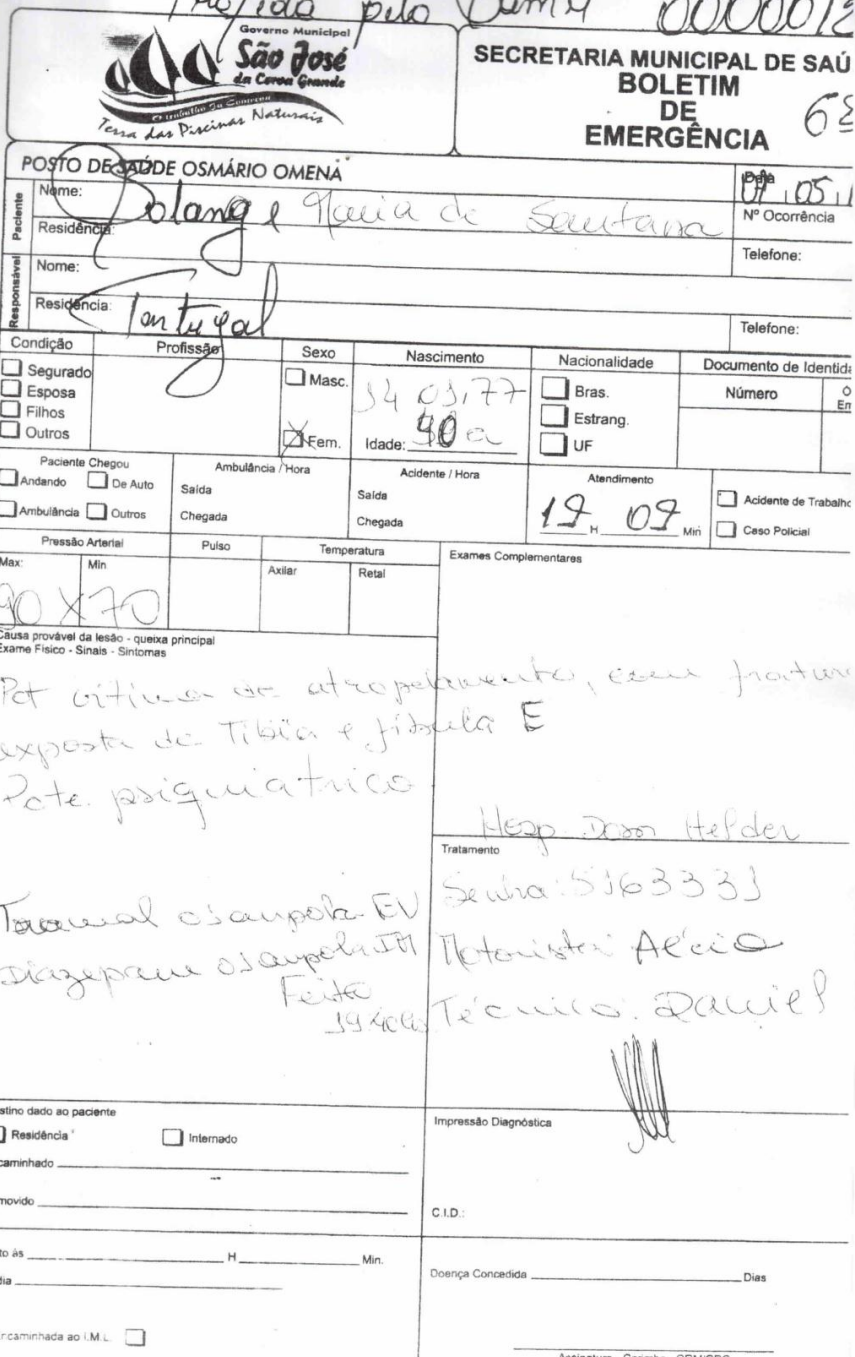 pelo 0000012
Governo Municipal
São José
da Coroa Grande
Terra das Piscinas Naturais
SECRETARIA MUNICIPAL DE SAÚ
BOLETIM
DE
EMERGÊNCIA
POSTO DE SAÚDE OSMÁRIO OMENA
Data
05
Paciente
Nome: Solange Maria de Santana
Nº Ocorrência
Residência:
Telefone:
Responsável
Nome:
Residência:
Telefone:
Condição
Profissão
Sexo
Nascimento
Nacionalidade
Documento de Identida
Segurado
Esposa
Filhos
Outros
Masc.
Fem.
14 03.77
Idade: 40 a
Bras.
Estrang.
UF
Número
Paciente Chegou
Andando
De Auto
Ambulância
Outros
Ambulância / Hora
Saída
Chegada
Acidente / Hora
Saída
Chegada
Atendimento
19 H 09 Min
Acidente de Trabalho
Caso Policial
Pressão Arterial
Max:
Min
90 X 70
Pulso
Temperatura
Axilar
Retal
Exames Complementares
Causa provável da lesão - queixa principal
Exame Físico - Sinais - Sintomas
Pct vítima de atropelamento, com fratura
exposta de Tíbia e fíbula E
Pcte. psiquiátrico
Hosp. Dom Helder
Tratamento
Tramal 01 ampola EV
Diazepam 01 ampola IM
Feito
Senha: 5163331
Motorista: Alécio
Técnico: Daniel
stino dado ao paciente
Residência
Internado
caminhado
movido
to às H Min.
dia
ncaminhada ao I.M.L.
Impressão Diagnóstica
C.I.D.:
Doença Concedida Dias